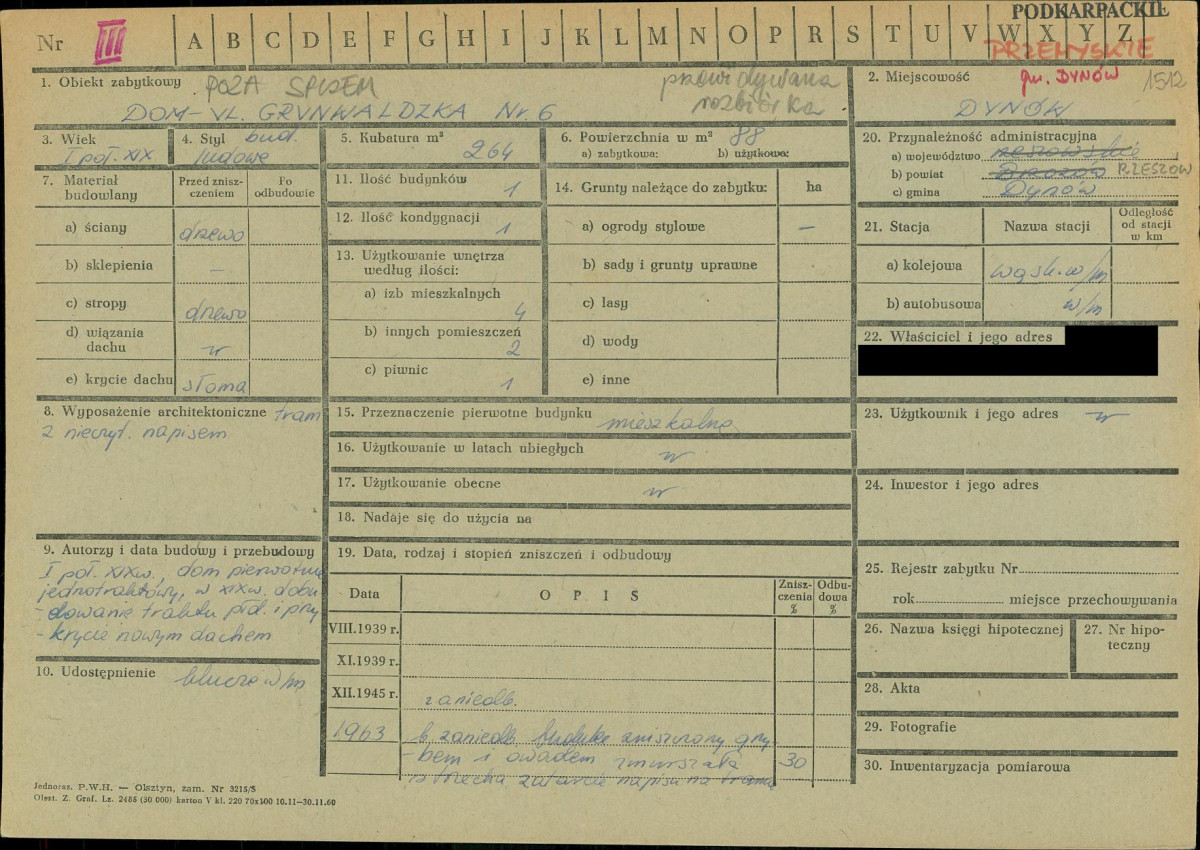 PODKARPACKIE
Nr III A B C D E F G H I J K L M N O P R S T U V W X Y Z
PRZEMYSKIE
gm. DYNÓW 1512
1. Obiekt zabytkowy POZA SPISEM
przewidywana
rozbiórka
DOM - UL. GRUNWALDZKA Nr. 6
2. Miejscowość
DYNÓW
3. Wiek
I poł. XIX
4. Styl bud.
ludowe
5. Kubatura m³
264
6. Powierzchnia w m² 88
a) zabytkowa: b) użytkowa:
20. Przynależność administracyjna
a) województwo rzeszowskie
b) powiat Brzozów RZESZÓW
c) gmina Dynów
7. Materiał
budowlany
Przed znisz-
czeniem
Po
odbudowie
a) ściany drewo
b) sklepienia —
c) stropy drewo
d) wiązania
dachu "
e) krycie dachu słoma
11. Ilość budynków
1
12. Ilość kondygnacji
1
13. Użytkowanie wnętrza
według ilości:
a) izb mieszkalnych
4
b) innych pomieszczeń
2
c) piwnic
1
14. Grunty należące do zabytku: ha
a) ogrody stylowe —
b) sady i grunty uprawne
c) lasy
d) wody
e) inne
21. Stacja Nazwa stacji
Odległość
od stacji
w km
a) kolejowa wąsk. w/m
b) autobusowa w/m
22. Właściciel i jego adres
8. Wyposażenie architektoniczne tram
z nieczyt. napisem
15. Przeznaczenie pierwotne budynku
mieszkalne
16. Użytkowanie w latach ubiegłych
"
17. Użytkowanie obecne
"
18. Nadaje się do użycia na
23. Użytkownik i jego adres "
24. Inwestor i jego adres
9. Autorzy i data budowy i przebudowy
I poł. XIXw., dom pierwotnie
jednotraktowy, w XIXw. dobu
-dowanie traktu płd. i przy
-krycie nowym dachem
10. Udostępnienie klucze w/m
19. Data, rodzaj i stopień zniszczeń i odbudowy
Data OPIS
Znisz-
czenia
%
Odbu-
dowa
%
VIII.1939 r.
XI.1939 r.
XII.1945 r. zaniedb.
1963 b. zaniedb. budynek zniszczony grzy
-bem i owadem zmurszała 30
strzecha zatarcie napisu na tramie
25. Rejestr zabytku Nr
rok miejsce przechowywania
26. Nazwa księgi hipotecznej
27. Nr hipo-
teczny
28. Akta
29. Fotografie
30. Inwentaryzacja pomiarowa
Jednoraz. P.W.H. — Olsztyn, zam. Nr 3215/S
Olszt. Z. Graf. Lz. 2488 (30 000) karton V kl. 220 70x100 10.11—30.11.60